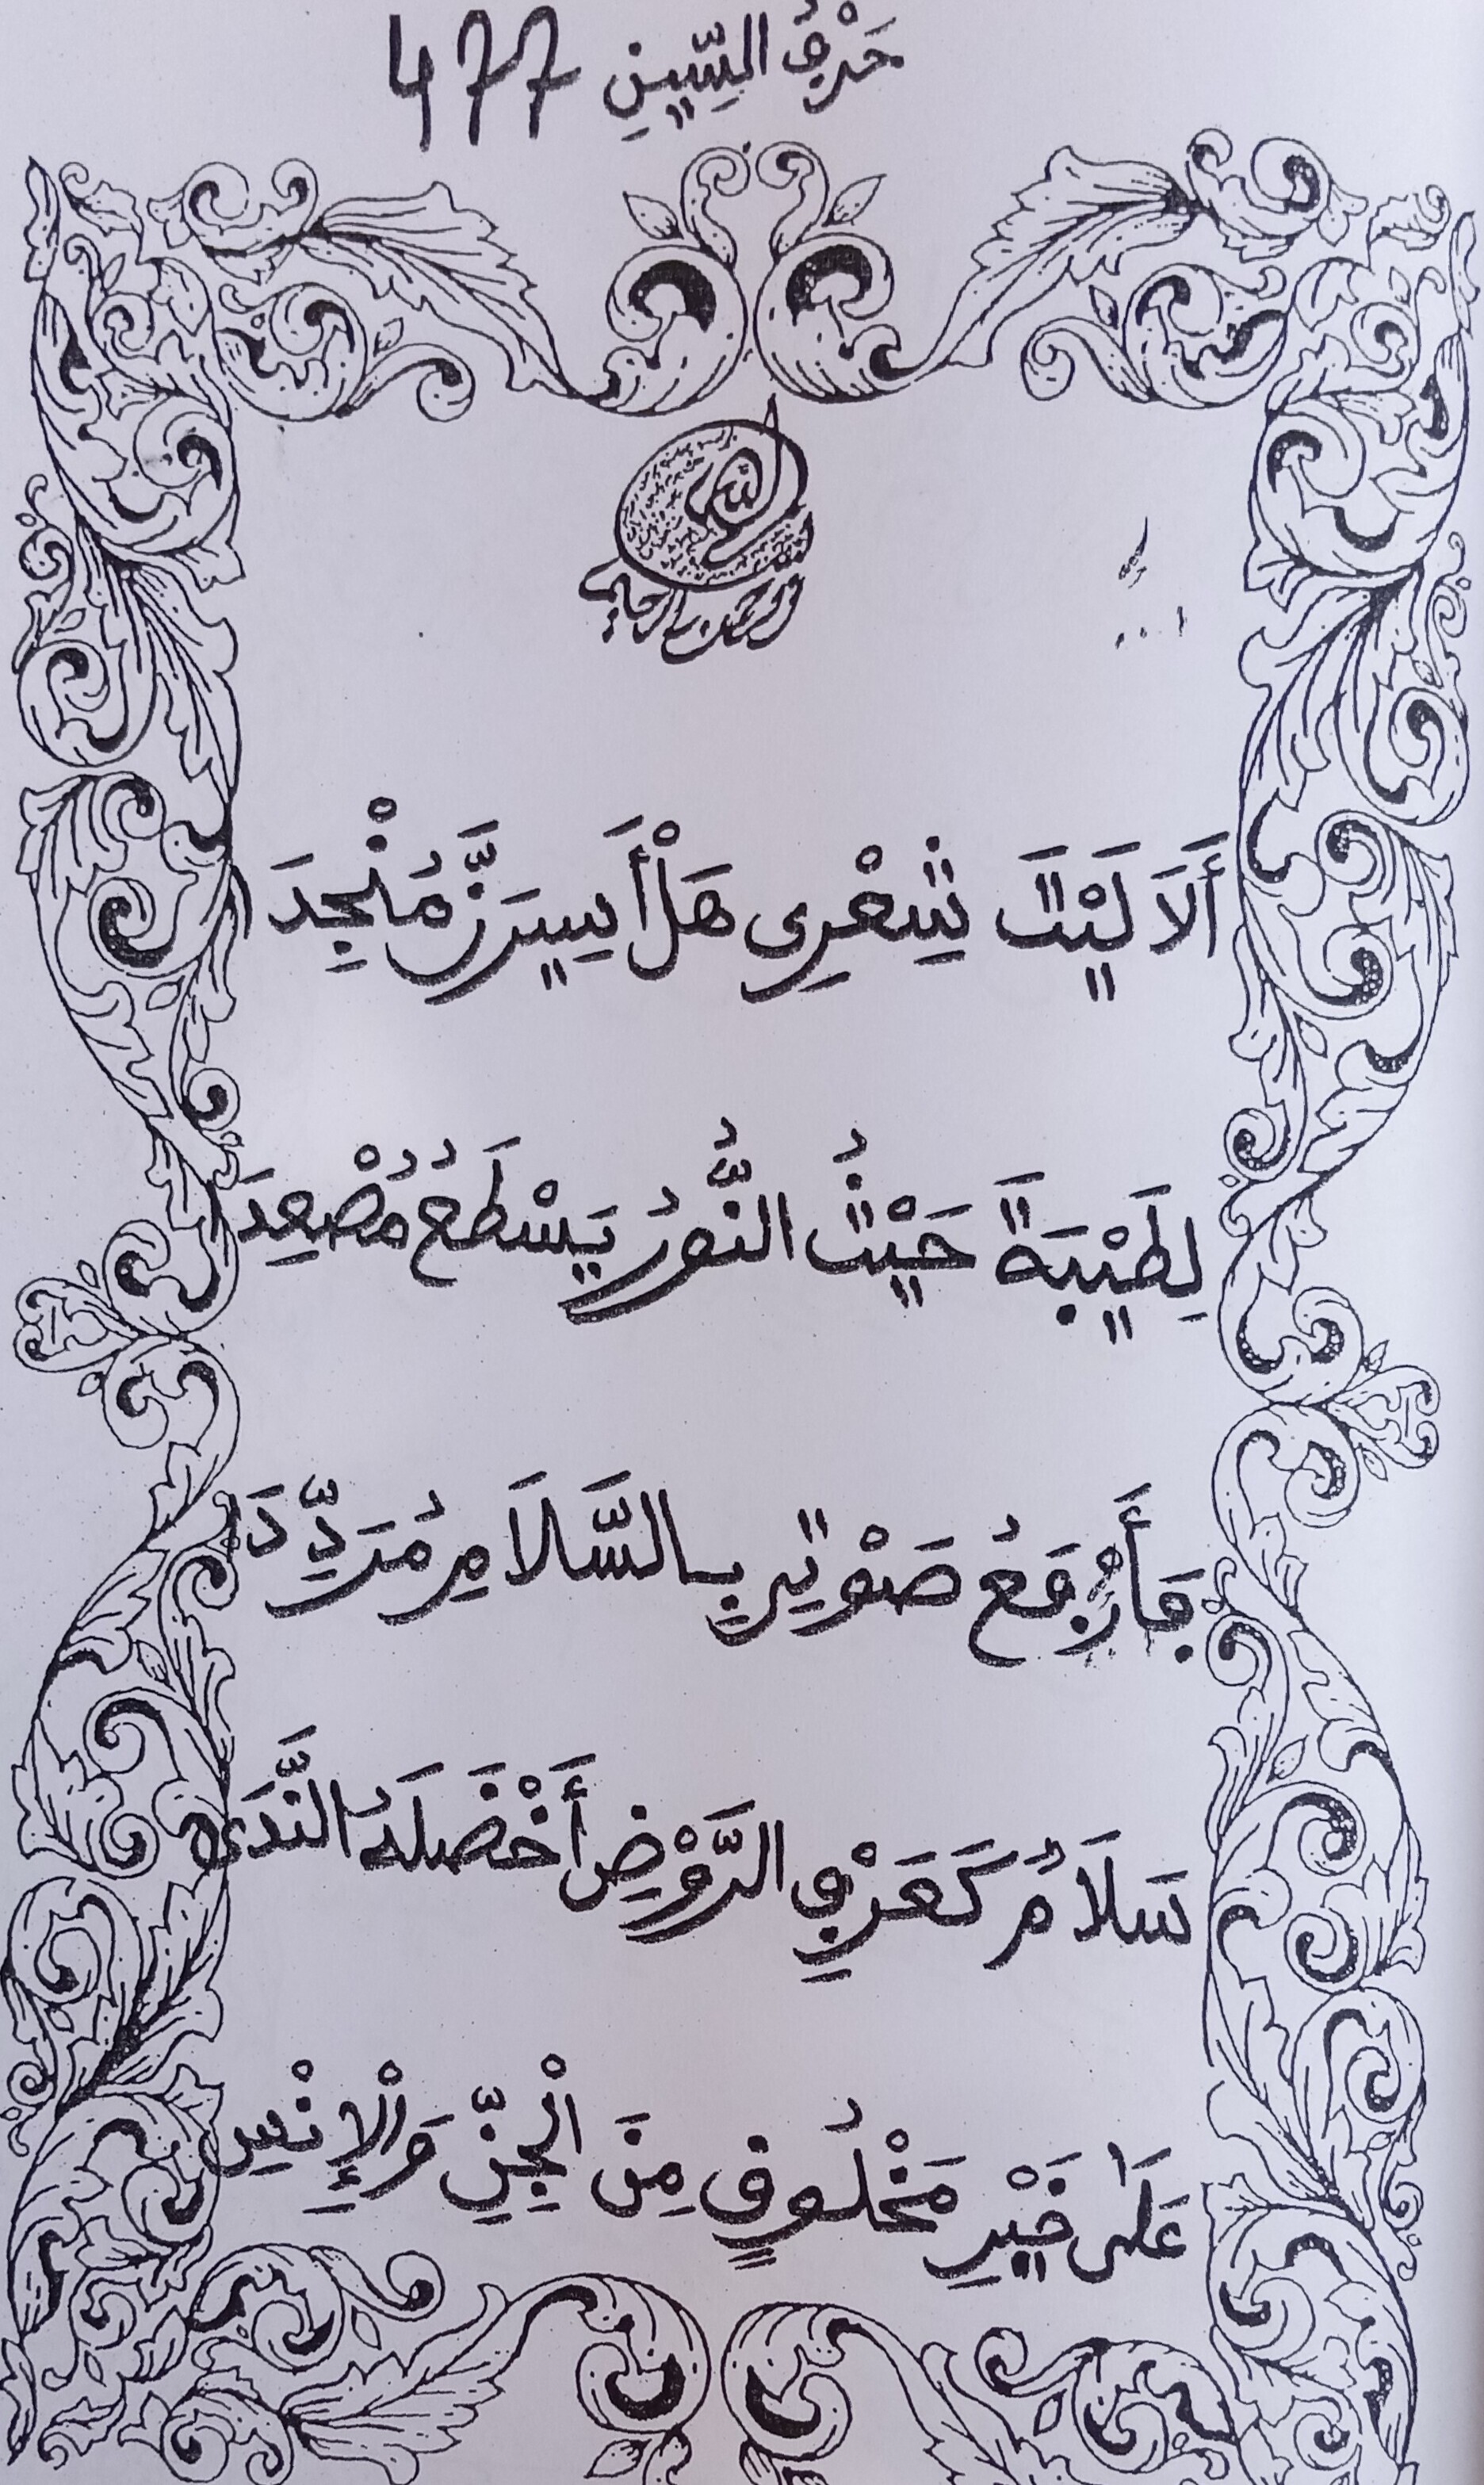 حَرْفُ السِّينِ 477
أَلَا لَيْتَ شِعْرِى هَلْ أَسِيرَنَّ مُنْجِدَ
لِطَيْبَةَ حَيْثُ النُّورُ يَسْطَعُ مُصْعِدَ
فَأَرْفَعُ صَوْتِي بِالسَّلَامِ مُرَدِّدَا
سَلَامٌ كَعَرْفِ الرَّوْضِ أَخْضَلَهُ النَّدَى
عَلَى خَيْرِ مَخْلُوقٍ مِنَ الْجِنِّ وَالْإِنْسِ